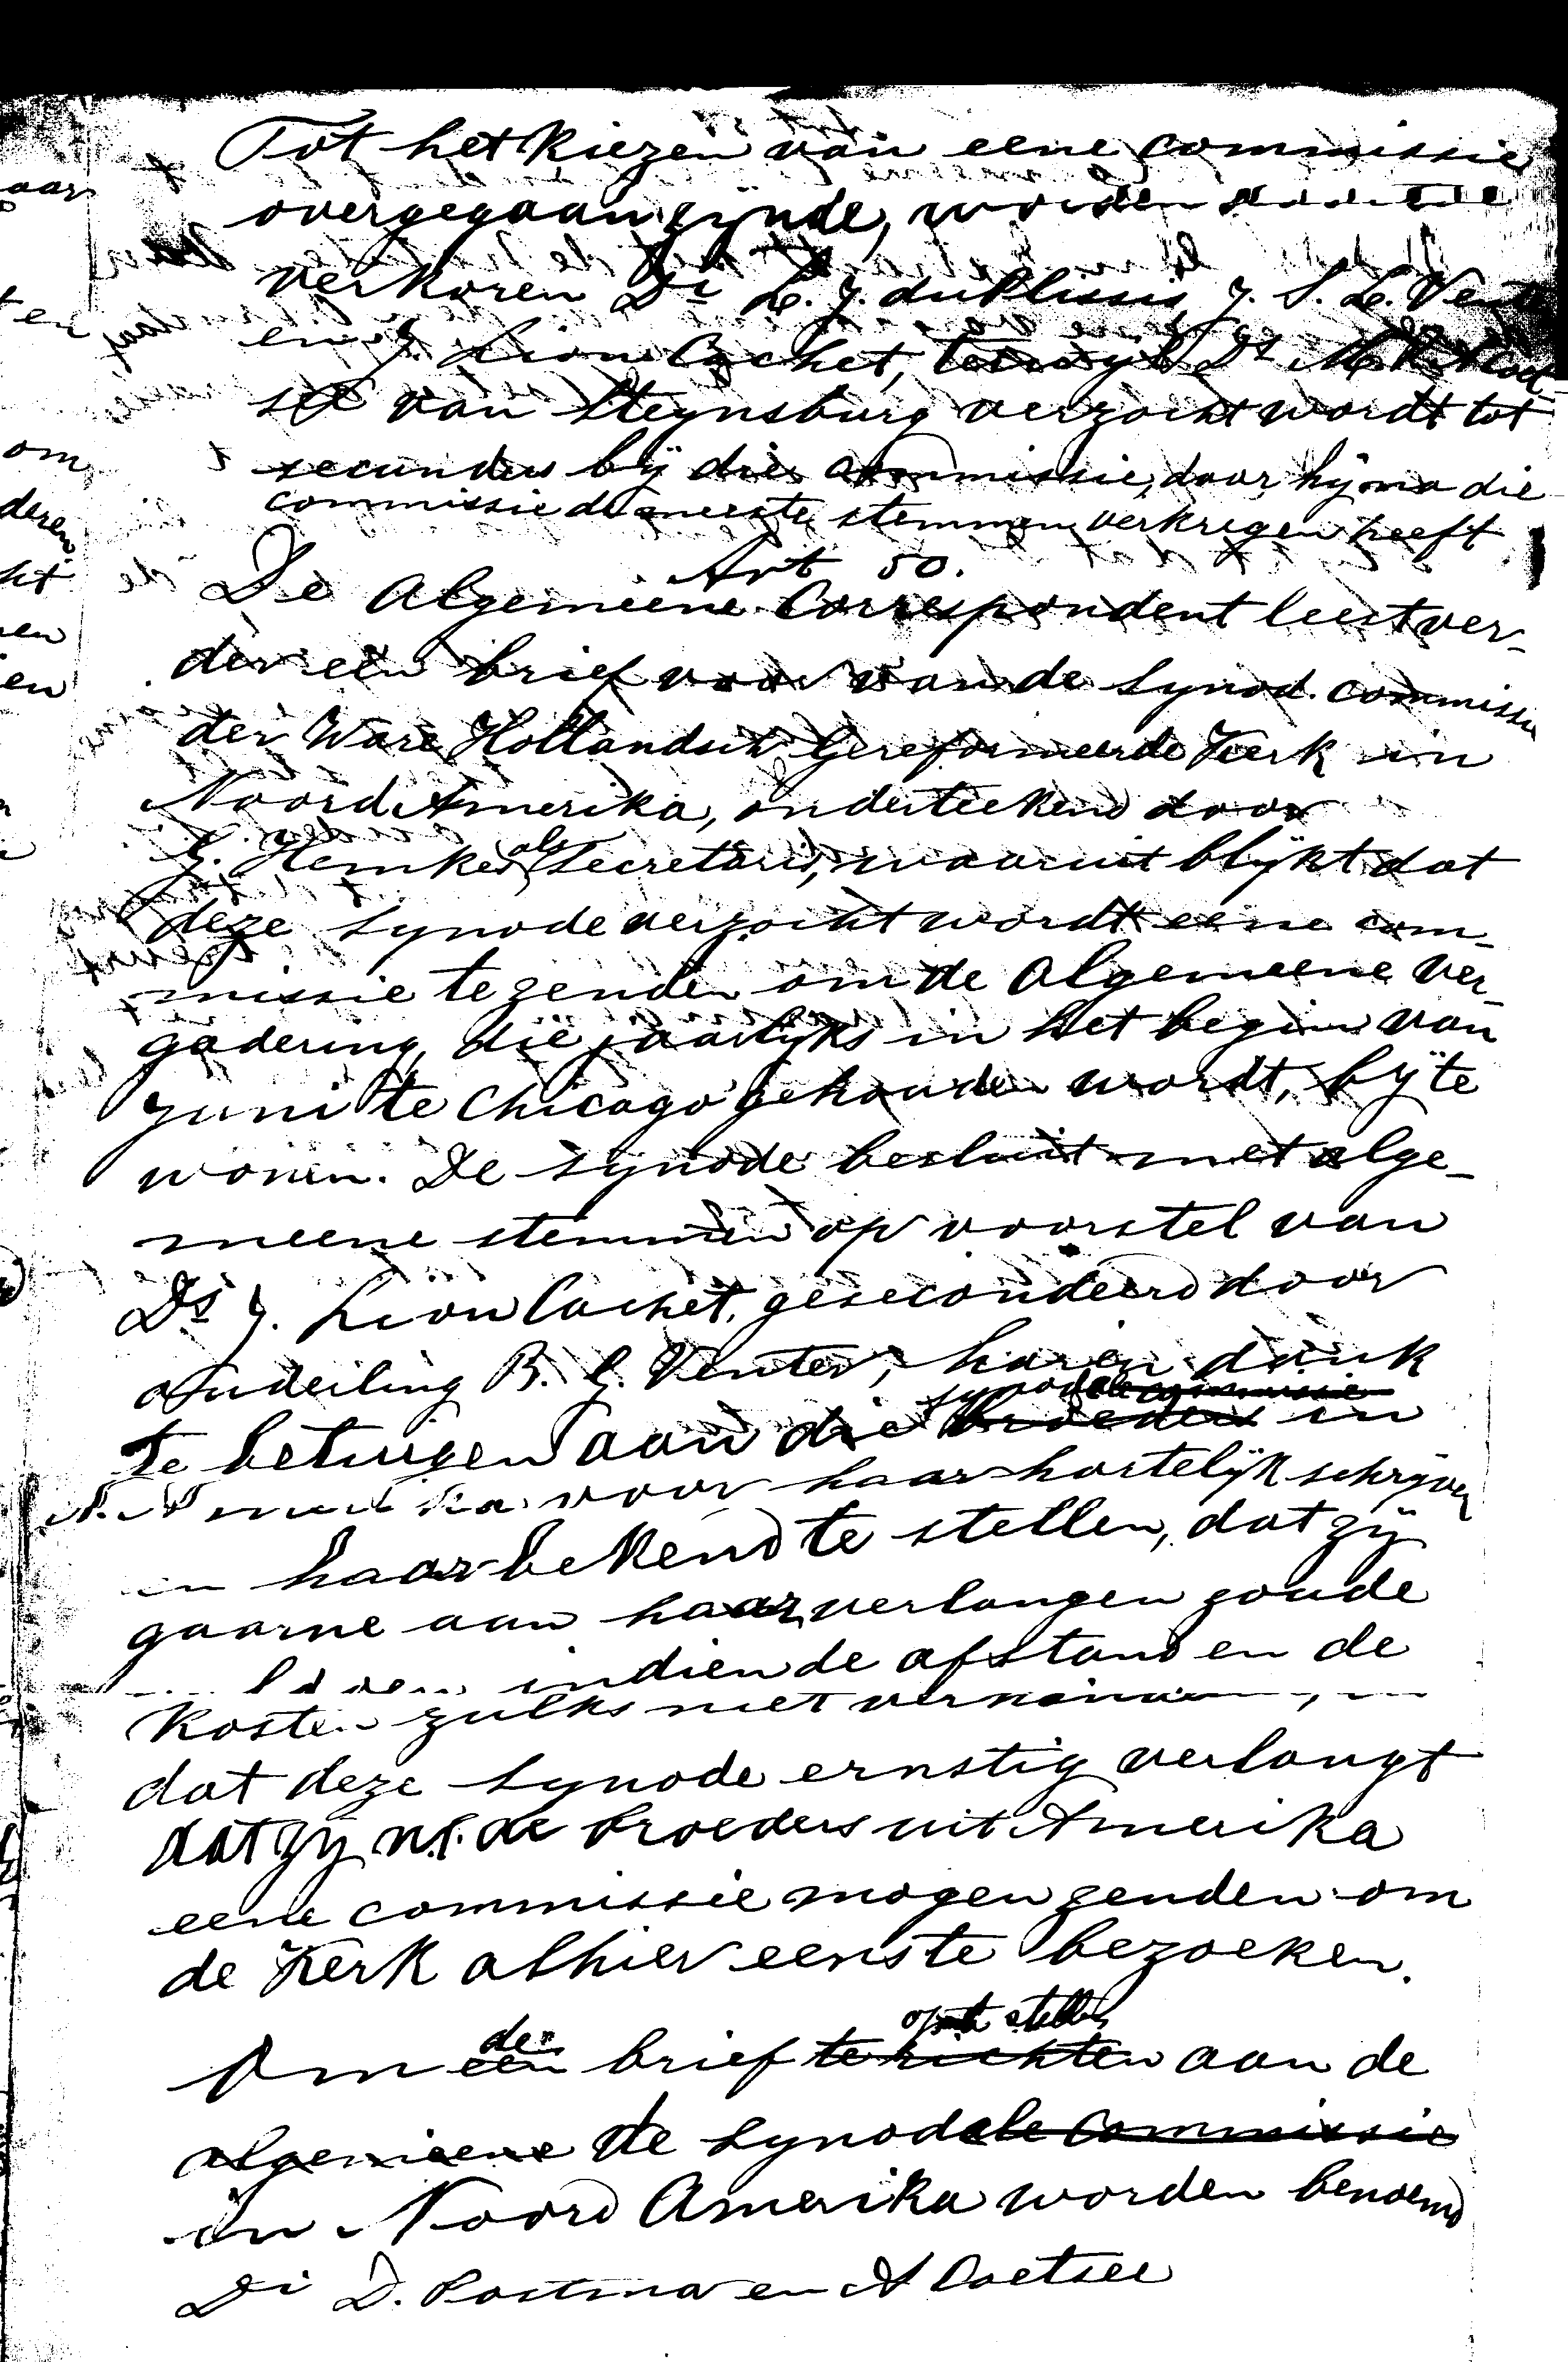 Tot het kiezen van eene commissie
overgegaan zijnde, worden daartoe
verkoren Di L. J. du Plessis, J. S. L. Venter
en J. Lion Cachet, terwijl Ds M. P. A. Coet-
see van Steynsburg verzocht wordt tot
secundus bij die commissie, daar hij na die
commissie de meeste stemmen verkregen heeft
Art 50.
De Algemeene Correspondent leest ver-
der een brief voor van de Synod. commissie
der Ware Hollandsch Gereformeerde Kerk in
Noord Amerika, onderteekend door
G. Hemkes als Secretaris, waaruit blijkt dat
deze Synode verzocht wordt eene com-
missie te zenden om de Algemeene Ver-
gadering, die jaarlijks in het begin van
Juni te Chicago gehouden wordt, bij te
wonen. De Synode besluit met alge-
meene stemmen op voorstel van
Ds J. Lion Cachet, gesecondeerd door
Ouderling B. G. Venter, haren dank
synodale commissie
te betuigen aan die broeders in
N. Amerika voor haar hartelijk schrijven
en haar bekend te stellen, dat zij
gaarne aan haar verlangen zoude
indien de afstand en de
kosten zulks niet
dat deze Synode ernstig verlangt
dat zij n.l. de broeders uit Amerika
eene commissie mogen zenden om
de Kerk alhier eens te bezoeken.
den op te stellen
Om een brief te richten aan de
algemeene de Synodale Commissie
in Noord Amerika worden benoemd
Di D. Postma en A Coetsee
aar
ten
om
deren
ht
en
ien